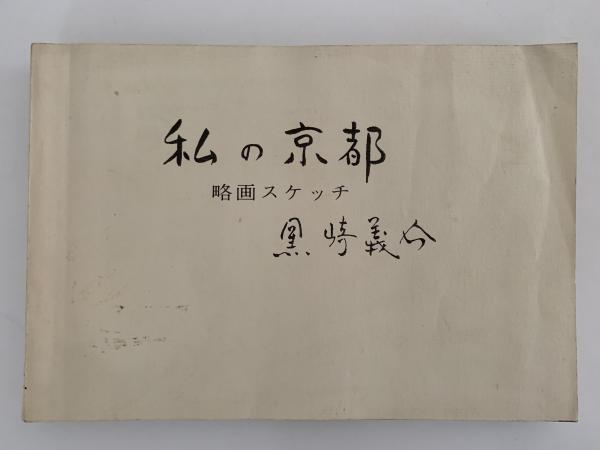 私の京都
略画スケッチ
黒崎義介